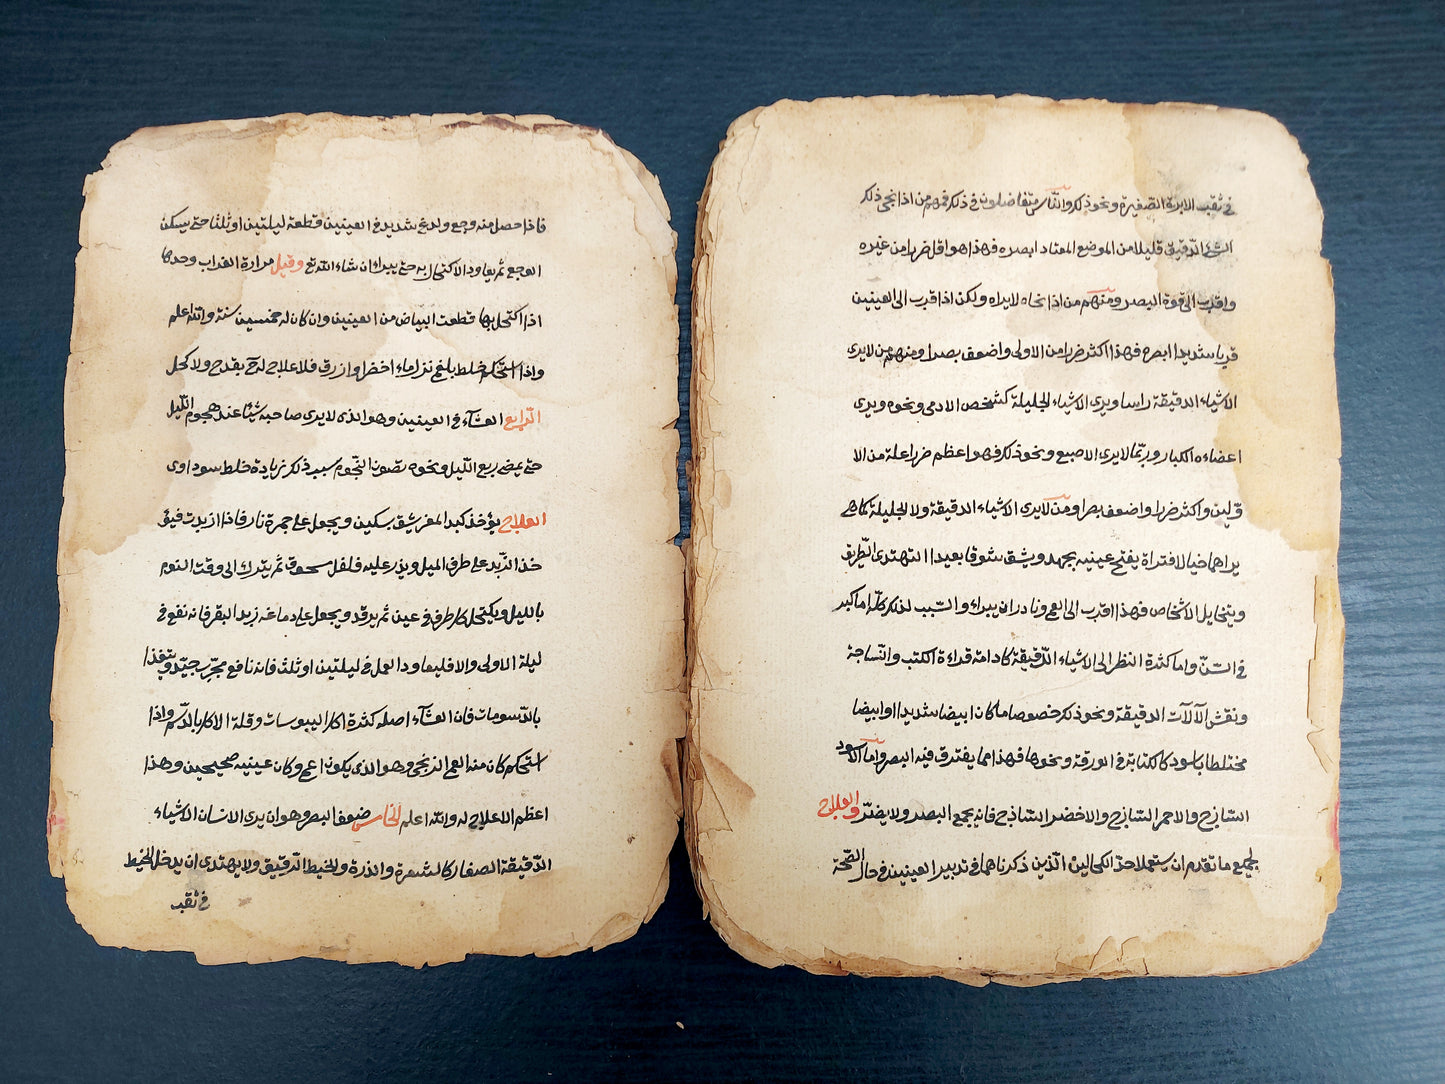 فاذا حصل منه وجع ولدغ شديد في العينين وقطعه ليلتين او ثلثا حتى يسكن
الوجع ثم يعاود الاكتحال به حتى يبراء ان شاء الله تع وقيل مرارة الغراب وحدها
اذا اكتحل بها قطعت البياض من العينين وان كان له خمسين سنة والله اعلم
واذا استحكم خلط بلغم نزل ماء اخضر او ازرق فلا علاج له بقدح ولا كحل
الرابع العشاء في العينين وهو الذى لا يرى صاحبه شيئا عند هجوم الليل
حتى يمضى ربع الليل ونحوه تصون النجوم سبب ذلك زيادة خلط سوداوى
العلاج يؤخذ كبد المعز يشق بسكين ويجعل على جمرة نار فاذا ازبدت فيؤ
خذ الزبد على طرف الميل ويذر عليه فلفل مسحوق ثم يترك الى وقت النوم
بالليل ويكتحل كل طرف في عين ثم يرقد ويجعل على دماغه زبد البقر فانه نفع في
ليلة الاولى والا فليعاود العمل في ليلتين او ثلث فانه نافع مجرب جيد ويتغذا
بالدسومات فان العشاء اصله كثرة اكل اليبوسات وقلة الاكل بالدسم واذا
استحكم كان منه العمى الزنجى وهو الذى يكون اعمى وكان عينيه صحيحين وهذا
اعظم الاعلاج له والله اعلم الخامس ضعف البصر وهو ان يرى الانسان الاشياء
الدقيقة الصغار كالشعرة والذرة والخيط الرقيق ولا يهتدى ان يدخل الخيط
في ثقب
في ثقب الابرة الصغيرة ونحو ذلك والناس متفاضلون في ذلك فمنهم من اذا نحى ذلك
الشئ الدقيق قليلا من الموضع المعتاد ابصره فهذا هو اقل ضررا من غيره
واقرب الى قوة البصر ومنهم من اذا نحاه لا يراه ولكن اذا قرب الى العينين
قربا شديدا ابصره فهذا اكثر ضررا من الاولى واضعف بصرا ومنهم من لا يرى
الاشياء الدقيقة راسا ويرى الاشياء الجليلة كشخص الادمى ونحوه ويرى
اعضاءه الكبار وربما لا يرى الاصبع ونحو ذلك فهو اعظم ضررا علة من الا
ولين واكثر ضررا واضعف بصرا ومن لا يرى الاشياء الدقيقة ولا الجليلة كاهي
يراهما خيالا فتراة يفتح عينيه بجهد ويشق شوقا بعيدا التهتدى الطريق
ويتخايل الاشخاص فهذا اقرب الى العمى ونادر ان يبراء والسبب لذلك كله اما كبر
في السن واما كثرة النظر الى الاشياء الدقيقة كادامة قراءة الكتب والنساجة
ونقش الآلات الدقيقة ونحو ذلك خصوصا ما كان ابيضا شديدا او ابيضا
مختلطا باسود كالكتابة في الورقة ونحوها فهذا مما يفترق فيه البصر واما الاسود
الساذج والاحمر الساذج والاخضر الساذج فانه يجمع البصر ولا يضر والعلاج
لجميع ما تقدم ان يستعملا حذ الكحالين الذين ذكرناهما في تدبير العينين في حال الصحة